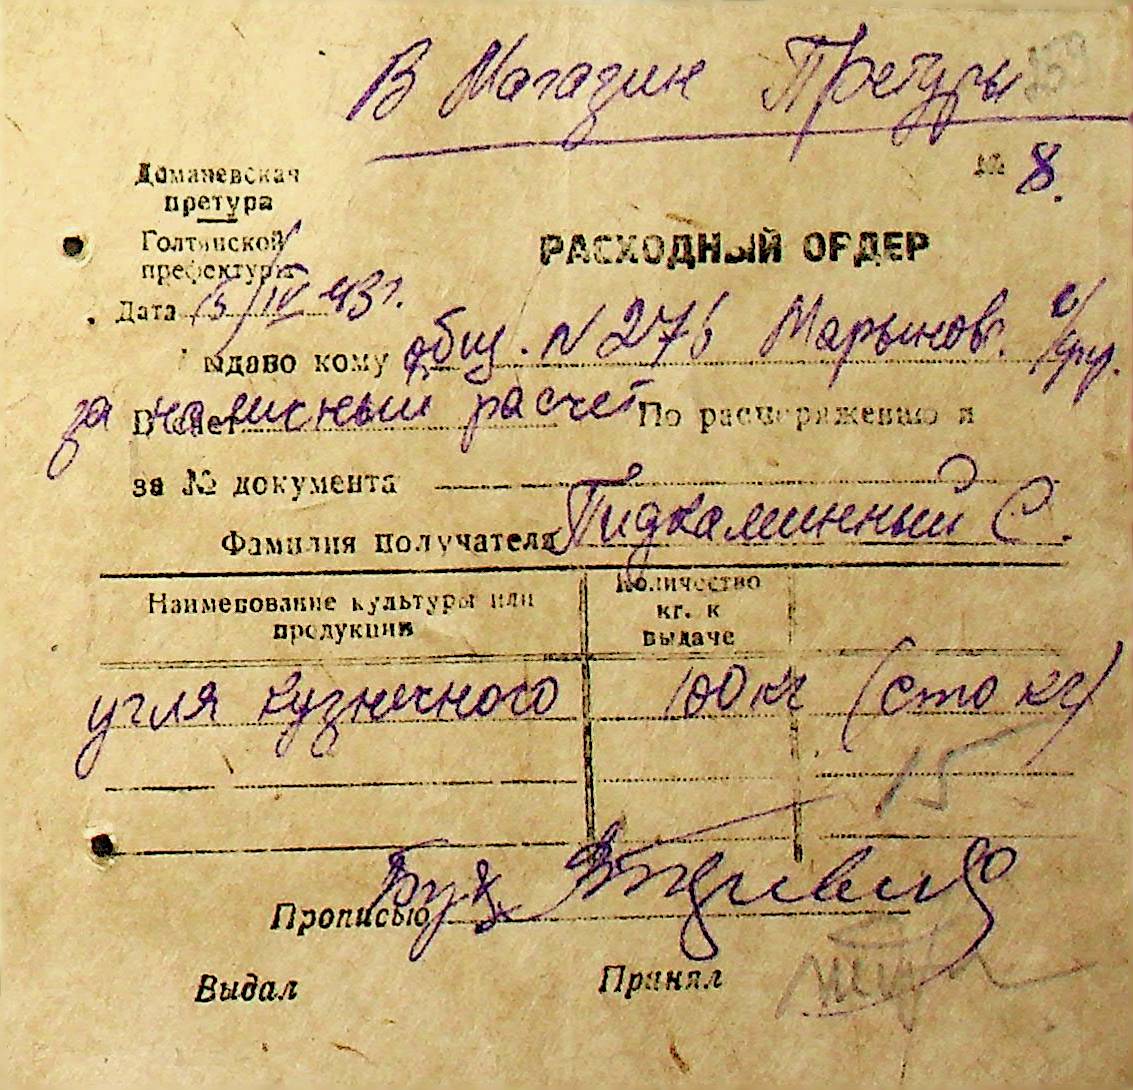 В Магазин Претуры
№ 8.
Доманевская
претура
Голтянской
префектуры
РАСХОДНЫЙ ОРДЕР
Дата 15/IV 43 г.
Выдаво кому общ. N 276 Марынов.
В счет за наличный расчет По распоряжению и
за № документа
Фамилия получателя Пидкаминный С.
Наименование культуры или
продукции
Количество
кг. к
выдаче
угля кузнечного 100 кг (сто кг)
15
Прописью Бух.
Выдал Принял